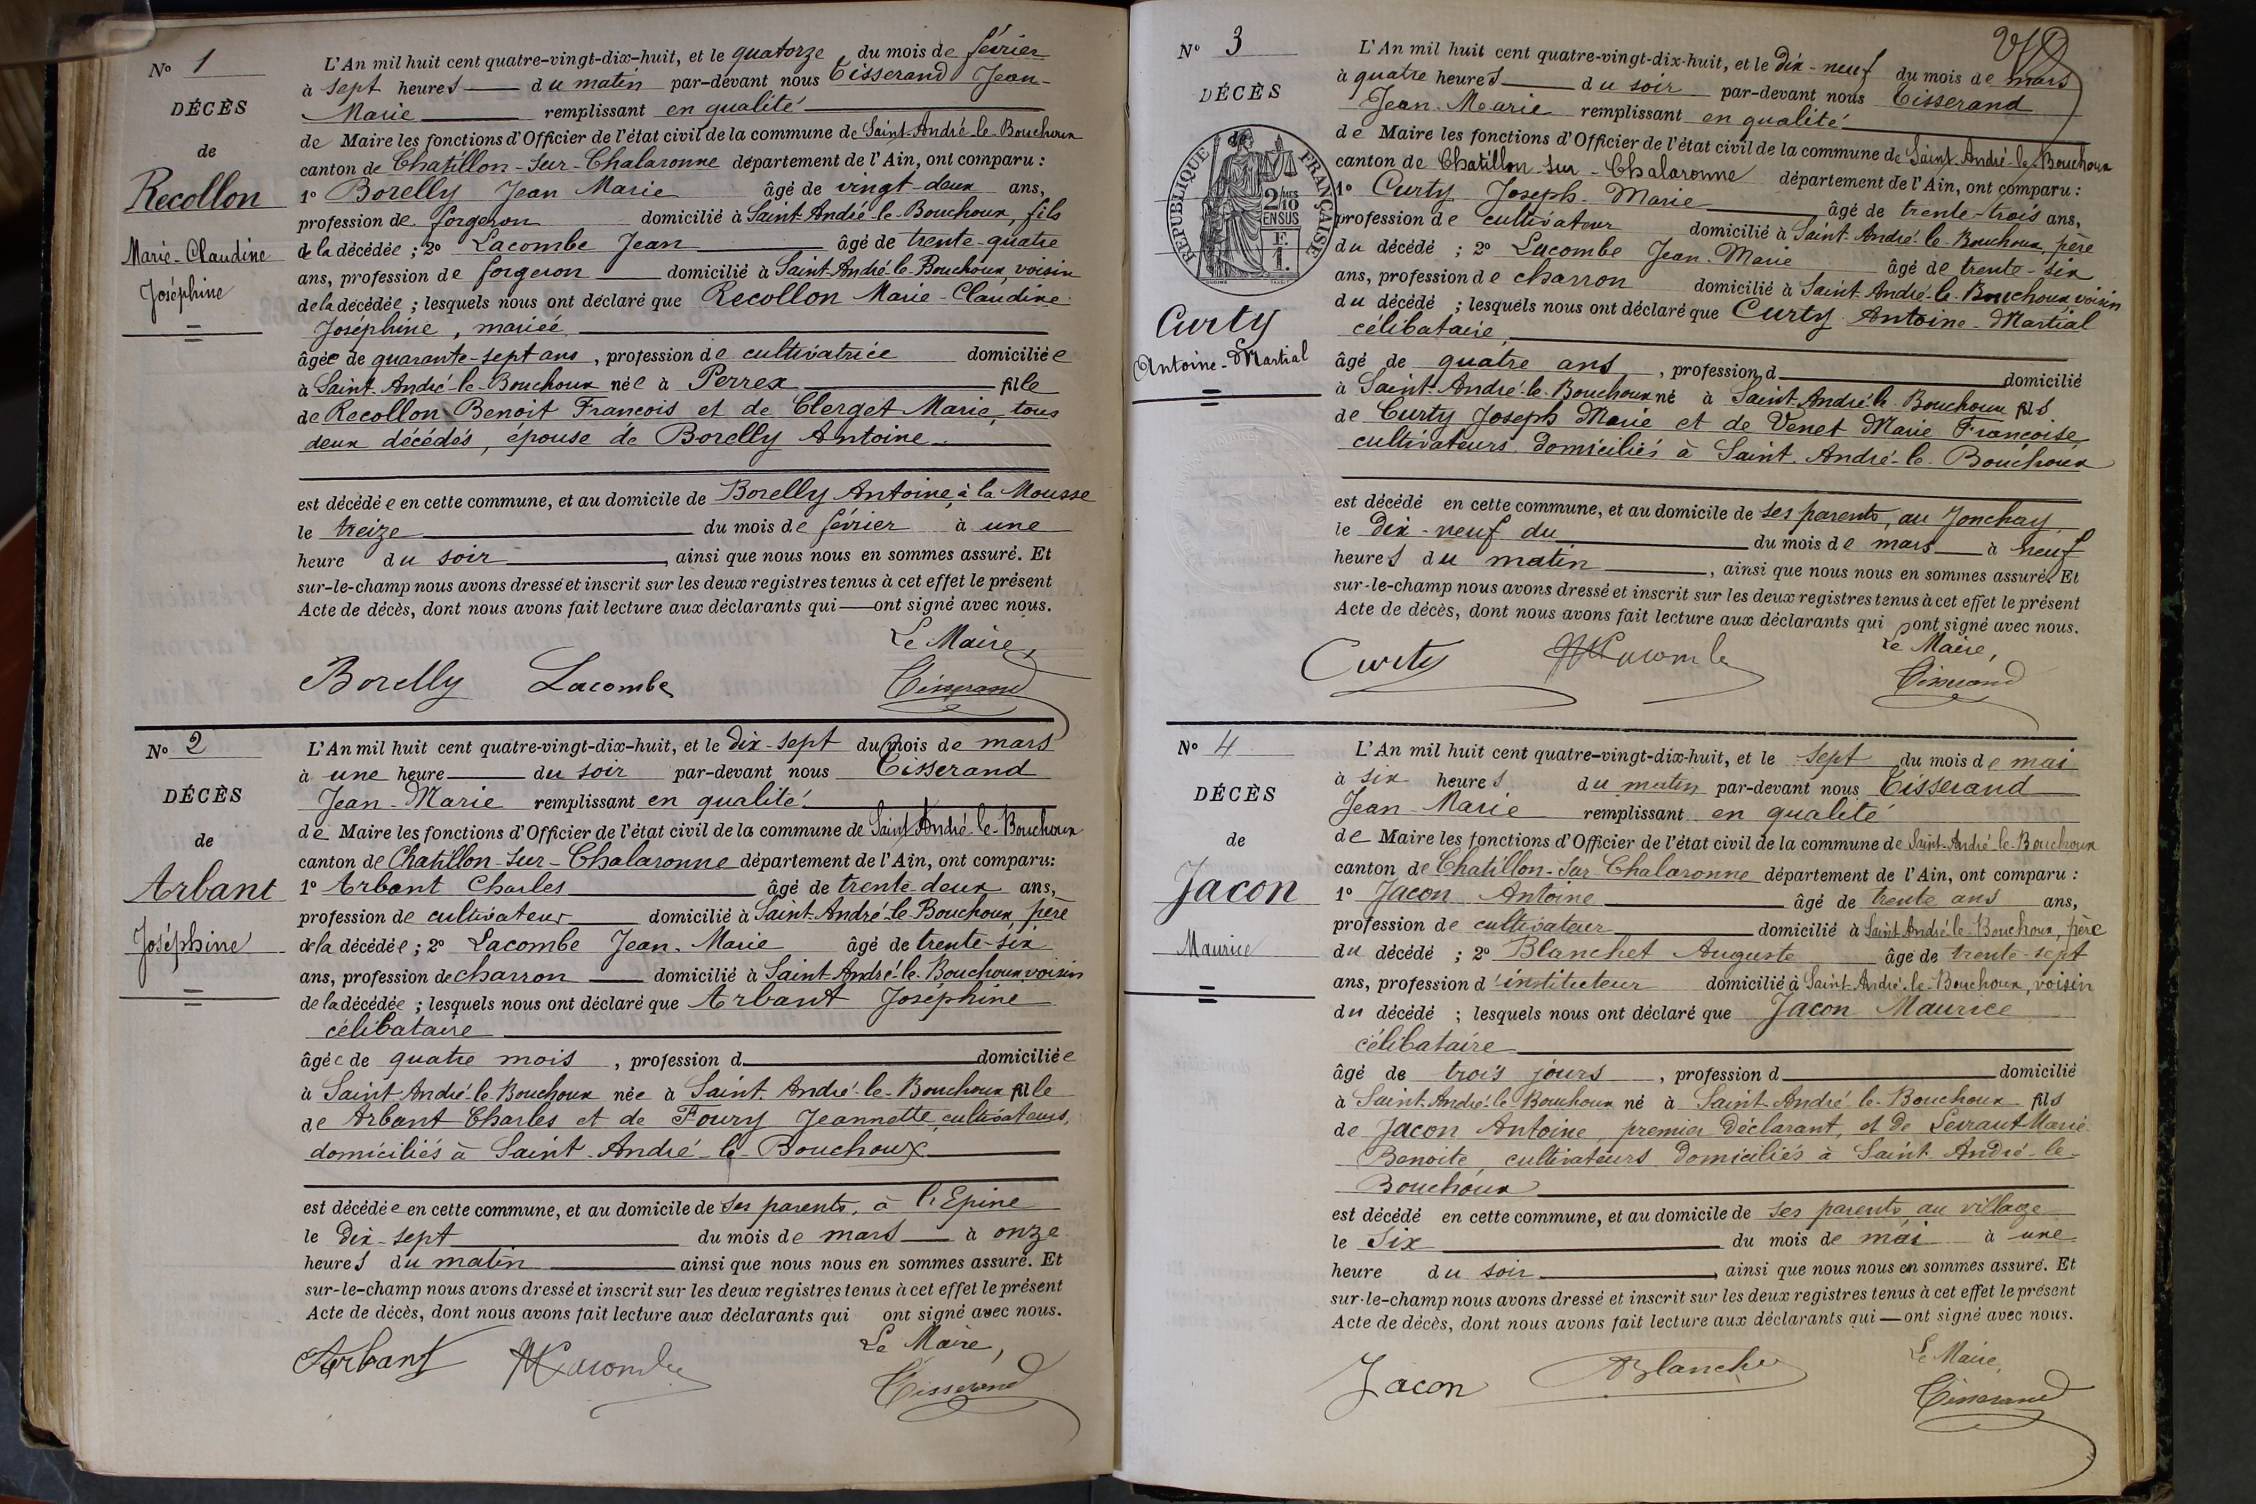 N° 1
DÉCÈS
de
Recollon
Marie-Claudine
Joséphine
L'An mil huit cent quatre-vingt-dix-huit, et le quatorze du mois de février
à sept heures du matin par-devant nous Tisserand Jean-
Marie remplissant en qualité
de Maire les fonctions d'Officier de l'état civil de la commune de Saint-André-le-Bouchoux
canton de Chatillon-sur-Chalaronne département de l'Ain, ont comparu :
1° Borelly Jean Marie âgé de vingt-deux ans,
profession de forgeron domicilié à Saint-André-le-Bouchoux, fils
de la décédée ; 2° Lacombe Jean âgé de trente-quatre
ans, profession de forgeron domicilié à Saint-André-le-Bouchoux, voisin
de la décédée ; lesquels nous ont déclaré que Recollon Marie-Claudine
Joséphine, mariée
âgée de quarante-sept ans, profession de cultivatrice domiciliée
à Saint-André-le-Bouchoux née à Perrex fille
de Recollon Benoit François et de Clerget Marie, tous
deux décédés, épouse de Borelly Antoine
est décédée en cette commune, et au domicile de Borelly Antoine, à la Mousse
le treize du mois de février à une
heure du soir, ainsi que nous nous en sommes assuré. Et
sur-le-champ nous avons dressé et inscrit sur les deux registres tenus à cet effet le présent
Acte de décès, dont nous avons fait lecture aux déclarants qui ont signé avec nous.
Le Maire,
Borelly Lacombe Tisserand
N° 2
DÉCÈS
de
Arbant
Joséphine
L'An mil huit cent quatre-vingt-dix-huit, et le dix-sept du mois de mars
à une heure du soir par-devant nous Tisserand
Jean-Marie remplissant en qualité
de Maire les fonctions d'Officier de l'état civil de la commune de Saint André-le-Bouchoux
canton de Chatillon-sur-Chalaronne département de l'Ain, ont comparu :
1° Arbant Charles âgé de trente-deux ans,
profession de cultivateur domicilié à Saint-André-le-Bouchoux, père
de la décédée ; 2° Lacombe Jean-Marie âgé de trente-six
ans, profession de charron domicilié à Saint-André-le-Bouchoux voisin
de la décédée ; lesquels nous ont déclaré que Arbant Joséphine
célibataire
âgée de quatre mois, profession d domiciliée
à Saint-André-le-Bouchoux née à Saint-André-le-Bouchoux fille
de Arbant Charles et de Foury Jeannette, cultivateurs,
domiciliés à Saint-André-le-Bouchoux
est décédée en cette commune, et au domicile de ses parents, à l'Epine
le dix-sept du mois de mars à onze
heures du matin ainsi que nous nous en sommes assuré. Et
sur-le-champ nous avons dressé et inscrit sur les deux registres tenus à cet effet le présent
Acte de décès, dont nous avons fait lecture aux déclarants qui ont signé avec nous.
Le Maire,
Arbant Lacombe Tisserand
N° 3
DÉCÈS
de
RÉPUBLIQUE FRANÇAISE
2/10 MES
EN SUS
F.
1.
Curty
Antoine-Martial
L'An mil huit cent quatre-vingt-dix-huit, et le dix-neuf du mois de mars
à quatre heures du soir par-devant nous Tisserand
Jean-Marie remplissant en qualité
de Maire les fonctions d'Officier de l'état civil de la commune de Saint André-le-Bouchoux
canton de Chatillon-sur-Chalaronne département de l'Ain, ont comparu :
1° Curty Joseph-Marie âgé de trente-trois ans,
profession de cultivateur domicilié à Saint-André-le-Bouchoux, père
du décédé ; 2° Lacombe Jean-Marie âgé de trente-six
ans, profession de charron domicilié à Saint-André-le-Bouchoux, voisin
du décédé ; lesquels nous ont déclaré que Curty Antoine-Martial
célibataire,
âgé de quatre ans, profession d domicilié
à Saint-André-le-Bouchoux né à Saint-André-le-Bouchoux fils
de Curty Joseph Marie et de Venet Marie Françoise,
cultivateurs domiciliés à Saint-André-le-Bouchoux
est décédé en cette commune, et au domicile de ses parents, au Jonchay
le dix-neuf du du mois de mars à neuf
heures du matin, ainsi que nous nous en sommes assuré. Et
sur-le-champ nous avons dressé et inscrit sur les deux registres tenus à cet effet le présent
Acte de décès, dont nous avons fait lecture aux déclarants qui ont signé avec nous.
Le Maire,
Curty Lacombe Tisserand
N° 4
DÉCÈS
de
Jacon
Maurice
L'An mil huit cent quatre-vingt-dix-huit, et le sept du mois de mai
à six heures du matin par-devant nous Tisserand
Jean-Marie remplissant en qualité
de Maire les fonctions d'Officier de l'état civil de la commune de Saint-André-le-Bouchoux
canton de Chatillon-sur-Chalaronne département de l'Ain, ont comparu :
1° Jacon Antoine âgé de trente ans ans,
profession de cultivateur domicilié à Saint André-le-Bouchoux, père
du décédé ; 2° Blanchet Auguste âgé de trente-sept
ans, profession d'instituteur domicilié à Saint-André-le-Bouchoux, voisin
du décédé ; lesquels nous ont déclaré que Jacon Maurice
célibataire
âgé de trois jours, profession d domicilié
à Saint-André-le-Bouchoux né à Saint-André-le-Bouchoux fils
de Jacon Antoine, premier déclarant, et de Levraut Marie
Benoite, cultivateurs domiciliés à Saint-André-le-
Bouchoux
est décédé en cette commune, et au domicile de ses parents au village
le six du mois de mai à une
heure du soir, ainsi que nous nous en sommes assuré. Et
sur-le-champ nous avons dressé et inscrit sur les deux registres tenus à cet effet le présent
Acte de décès, dont nous avons fait lecture aux déclarants qui ont signé avec nous.
Le Maire,
Jacon Blanchet Tisserand